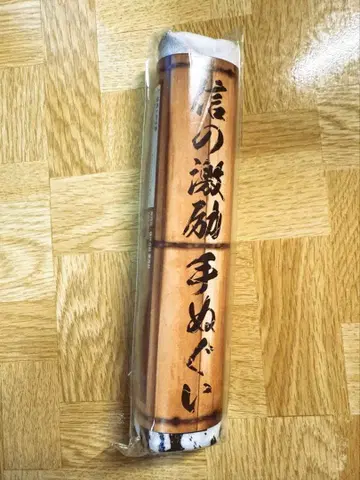 信の激励手ぬぐい